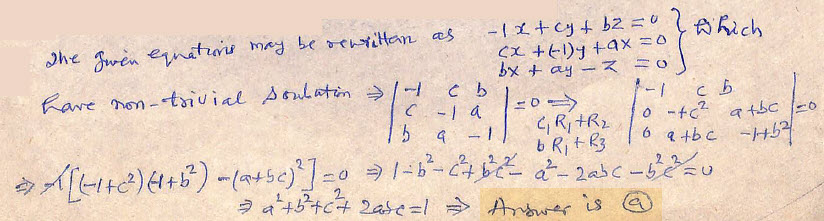 The given equations may be rewritten as -1x + cy + bz = 0 } which
cx + (-1)y + ax = 0
bx + ay - z = 0
have non-trivial soulation ⇒ |-1 c b; c -1 a; b a -1| = 0 ⇒ C₁R₁+R₂ bR₁+R₃ |-1 c b; 0 -1+c² a+bc; 0 a+bc -1+b²| = 0
⇒ -1[(-1+c²)(-1+b²) - (a+bc)²] = 0 ⇒ 1-b²-c²+b²c²-a²-2abc-b²c²=0
⇒ a²+b²+c²+2abc=1 ⇒ Answer is (a)